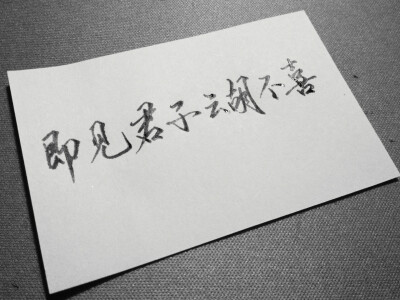 即见君子云胡不喜